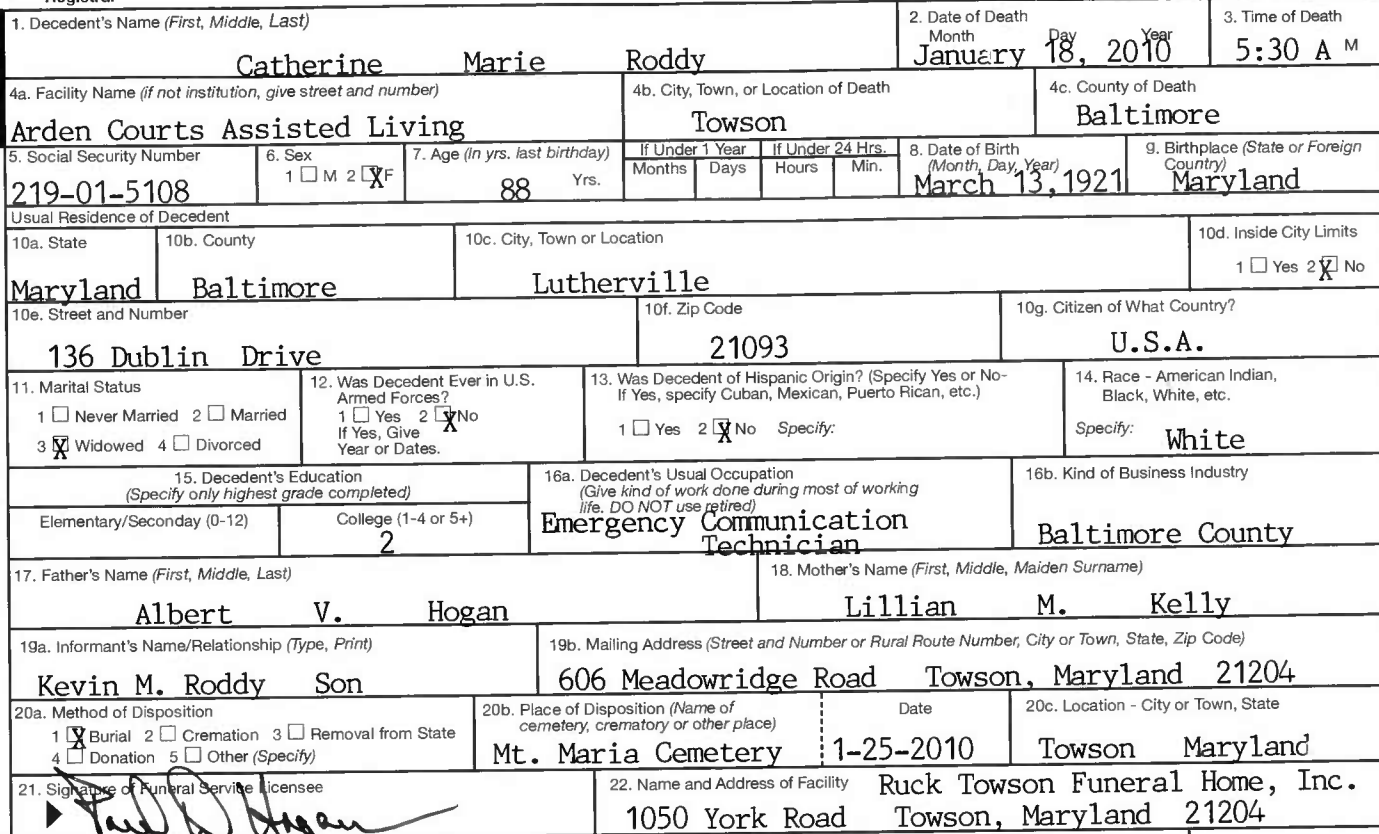 1. Decedent's Name (First, Middle, Last)
Catherine Marie Roddy
2. Date of Death
Month Day Year
January 18, 2010
3. Time of Death
5:30 A M
4a. Facility Name (if not institution, give street and number)
Arden Courts Assisted Living
4b. City, Town, or Location of Death
Towson
4c. County of Death
Baltimore
5. Social Security Number
219-01-5108
6. Sex
1 ☐ M 2 ☒ F
7. Age (In yrs. last birthday)
88 Yrs.
If Under 1 Year
Months Days
If Under 24 Hrs.
Hours Min.
8. Date of Birth
(Month, Day, Year)
March 13, 1921
9. Birthplace (State or Foreign
Country)
Maryland
Usual Residence of Decedent
10a. State
Maryland
10b. County
Baltimore
10c. City, Town or Location
Lutherville
10d. Inside City Limits
1 ☐ Yes 2 ☒ No
10e. Street and Number
136 Dublin Drive
10f. Zip Code
21093
10g. Citizen of What Country?
U.S.A.
11. Marital Status
1 ☐ Never Married 2 ☐ Married
3 ☒ Widowed 4 ☐ Divorced
12. Was Decedent Ever in U.S.
Armed Forces?
1 ☐ Yes 2 ☒ No
If Yes, Give
Year or Dates.
13. Was Decedent of Hispanic Origin? (Specify Yes or No-
If Yes, specify Cuban, Mexican, Puerto Rican, etc.)
1 ☐ Yes 2 ☒ No Specify:
14. Race - American Indian,
Black, White, etc.
Specify: White
15. Decedent's Education
(Specify only highest grade completed)
Elementary/Seconday (0-12)
College (1-4 or 5+)
2
16a. Decedent's Usual Occupation
(Give kind of work done during most of working
life. DO NOT use retired)
Emergency Communication
Technician
16b. Kind of Business Industry
Baltimore County
17. Father's Name (First, Middle, Last)
Albert V. Hogan
18. Mother's Name (First, Middle, Maiden Surname)
Lillian M. Kelly
19a. Informant's Name/Relationship (Type, Print)
Kevin M. Roddy Son
19b. Mailing Address (Street and Number or Rural Route Number, City or Town, State, Zip Code)
606 Meadowridge Road Towson, Maryland 21204
20a. Method of Disposition
1 ☒ Burial 2 ☐ Cremation 3 ☐ Removal from State
4 ☐ Donation 5 ☐ Other (Specify)
20b. Place of Disposition (Name of
cemetery, crematory or other place)
Mt. Maria Cemetery
Date
1-25-2010
20c. Location - City or Town, State
Towson Maryland
21. Signature of Funeral Service Licensee
22. Name and Address of Facility Ruck Towson Funeral Home, Inc.
1050 York Road Towson, Maryland 21204